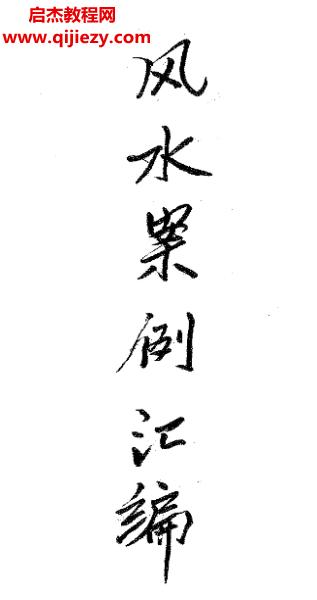 启杰教程网
www.qijiezy.com
风水案例汇编